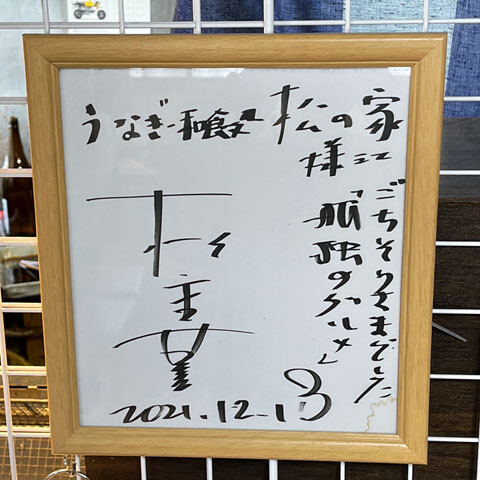 うなぎ・和食処 松の家
様江
ごちそうさまでした
「孤独のグルメ」
松重豊
2021.12.13